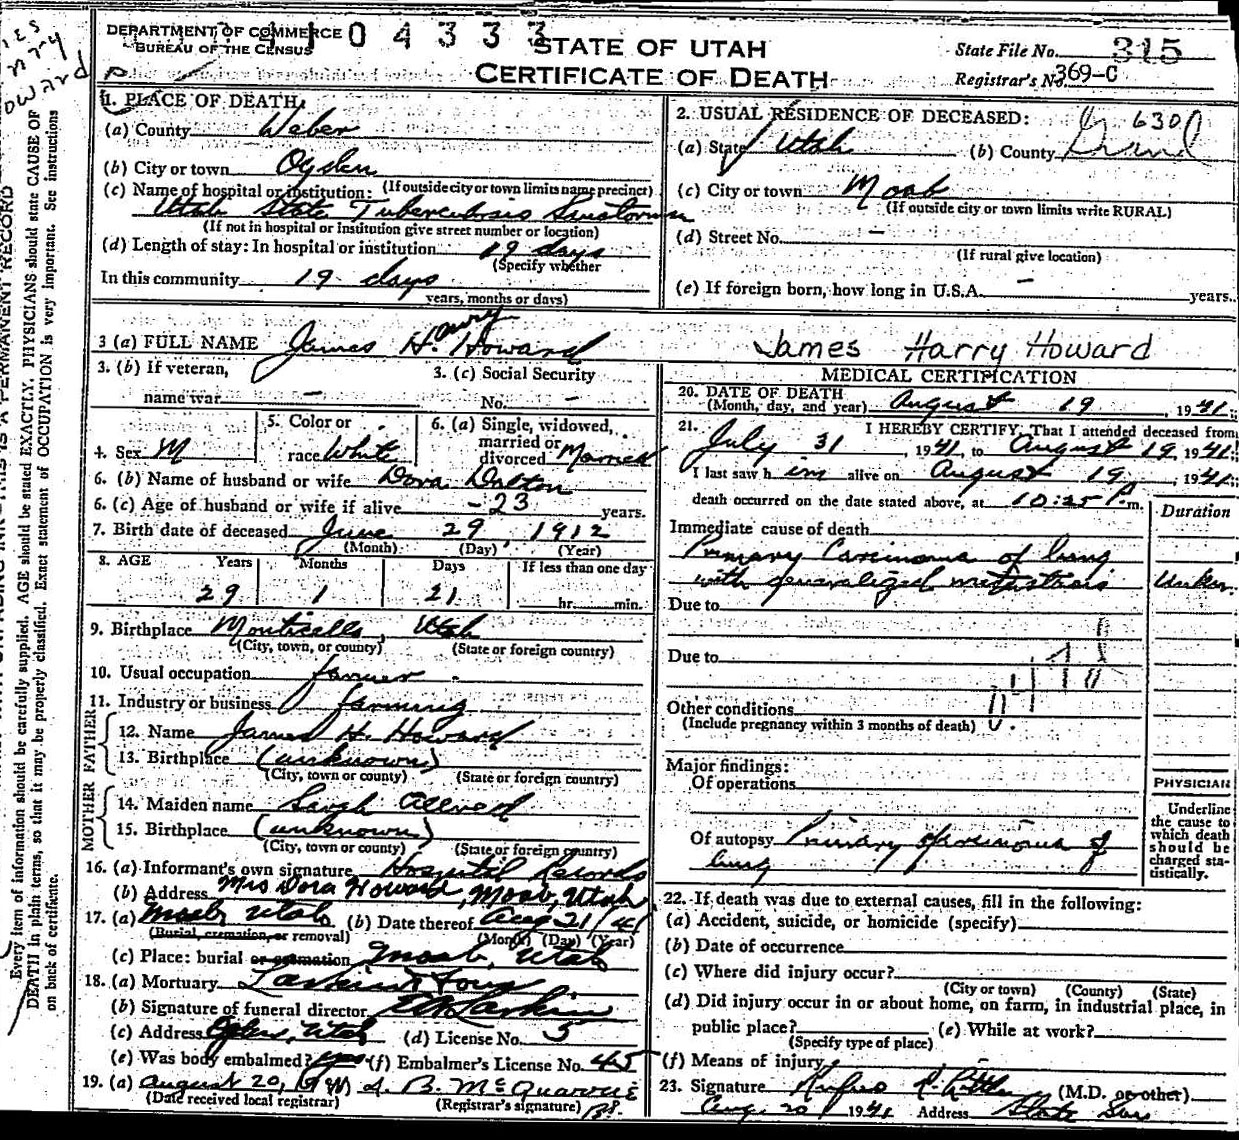 DEPARTMENT OF COMMERCE
BUREAU OF THE CENSUS
4 1 0 4 3 3 3
STATE OF UTAH
CERTIFICATE OF DEATH
State File No. 315
Registrar's No. 369-C
1. PLACE OF DEATH:
(a) County Weber
(b) City or town Ogden
(c) Name of hospital or institution: (If outside city or town limits name precinct)
Utah State Tuberculosis
(If not in hospital or institution give street number or location)
(d) Length of stay: In hospital or institution 19 days
(Specify whether
In this community 19 days
years, months or days)
2. USUAL RESIDENCE OF DECEASED: 630
(a) State Utah (b) County Grand
(c) City or town Moab
(If outside city or town limits write RURAL)
(d) Street No. -
(If rural give location)
(e) If foreign born, how long in U.S.A. - years.
3 (a) FULL NAME James H. Howard
James Harry Howard
3. (b) If veteran, name war -
3. (c) Social Security No. -
4. Sex M
5. Color or race White
6. (a) Single, widowed, married or divorced Married
6. (b) Name of husband or wife Dora Dalton
6. (c) Age of husband or wife if alive -23 years.
7. Birth date of deceased June 29, 1912
(Month) (Day) (Year)
8. AGE Years Months Days If less than one day
29 1 21 hr. min.
9. Birthplace Monticello, Utah
(City, town, or county) (State or foreign country)
10. Usual occupation farmer
11. Industry or business farming
FATHER
12. Name James H. Howard
13. Birthplace (unknown)
(City, town or county) (State or foreign country)
MOTHER
14. Maiden name Sarah Allred
15. Birthplace (unknown)
(City, town or county) (State or foreign country)
16. (a) Informant's own signature Hospital Records
(b) Address Mrs Dora Howard, Moab, Utah
17. (a) Moab, Utah (b) Date thereof Aug 21/41
(Burial, cremation, or removal) (Month) (Day) (Year)
(c) Place: burial or cremation Moab, Utah
18. (a) Mortuary Larkin & Sons
(b) Signature of funeral director Larkin
(c) Address Ogden, Utah (d) License No. 5
(e) Was body embalmed? yes (f) Embalmer's License No. 45
19. (a) August 20, 1941
(Date received local registrar) (Registrar's signature)
MEDICAL CERTIFICATION
20. DATE OF DEATH
(Month, day, and year) August 19, 1941
21. I HEREBY CERTIFY, That I attended deceased from
July 31, 1941, to August 19, 1941;
I last saw h im alive on August 19, 1941;
death occurred on the date stated above, at 10:25 P.m.
Duration
Immediate cause of death
Primary Carcinoma of lung
with generalized metastasis
Due to
Due to
Other conditions
(Include pregnancy within 3 months of death)
Major findings:
Of operations
Of autopsy Primary carcinoma of
lung
PHYSICIAN
Underline
the cause to
which death
should be
charged sta-
tistically.
22. If death was due to external causes, fill in the following:
(a) Accident, suicide, or homicide (specify)
(b) Date of occurrence
(c) Where did injury occur?
(City or town) (County) (State)
(d) Did injury occur in or about home, on farm, in industrial place, in
public place? (e) While at work?
(Specify type of place)
(f) Means of injury
23. Signature (M.D. or other)
Aug. 20 1941 Address State San
Every item of information should be carefully supplied. AGE should be stated EXACTLY. PHYSICIANS should state CAUSE OF
DEATH in plain terms, so that it may be properly classified. Exact statement of OCCUPATION is very important. See instructions
on back of certificate.